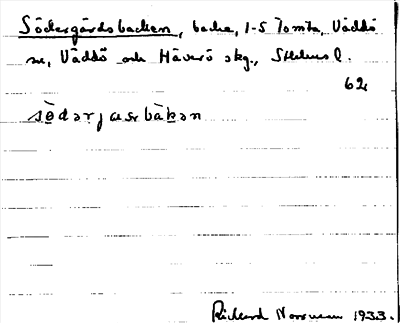 Södergårdsbacken, backe, 1-5 Tomta, Väddö
sn, Väddö och Häverö skg., Sthlms l.
62
Richard Norrman 1933.